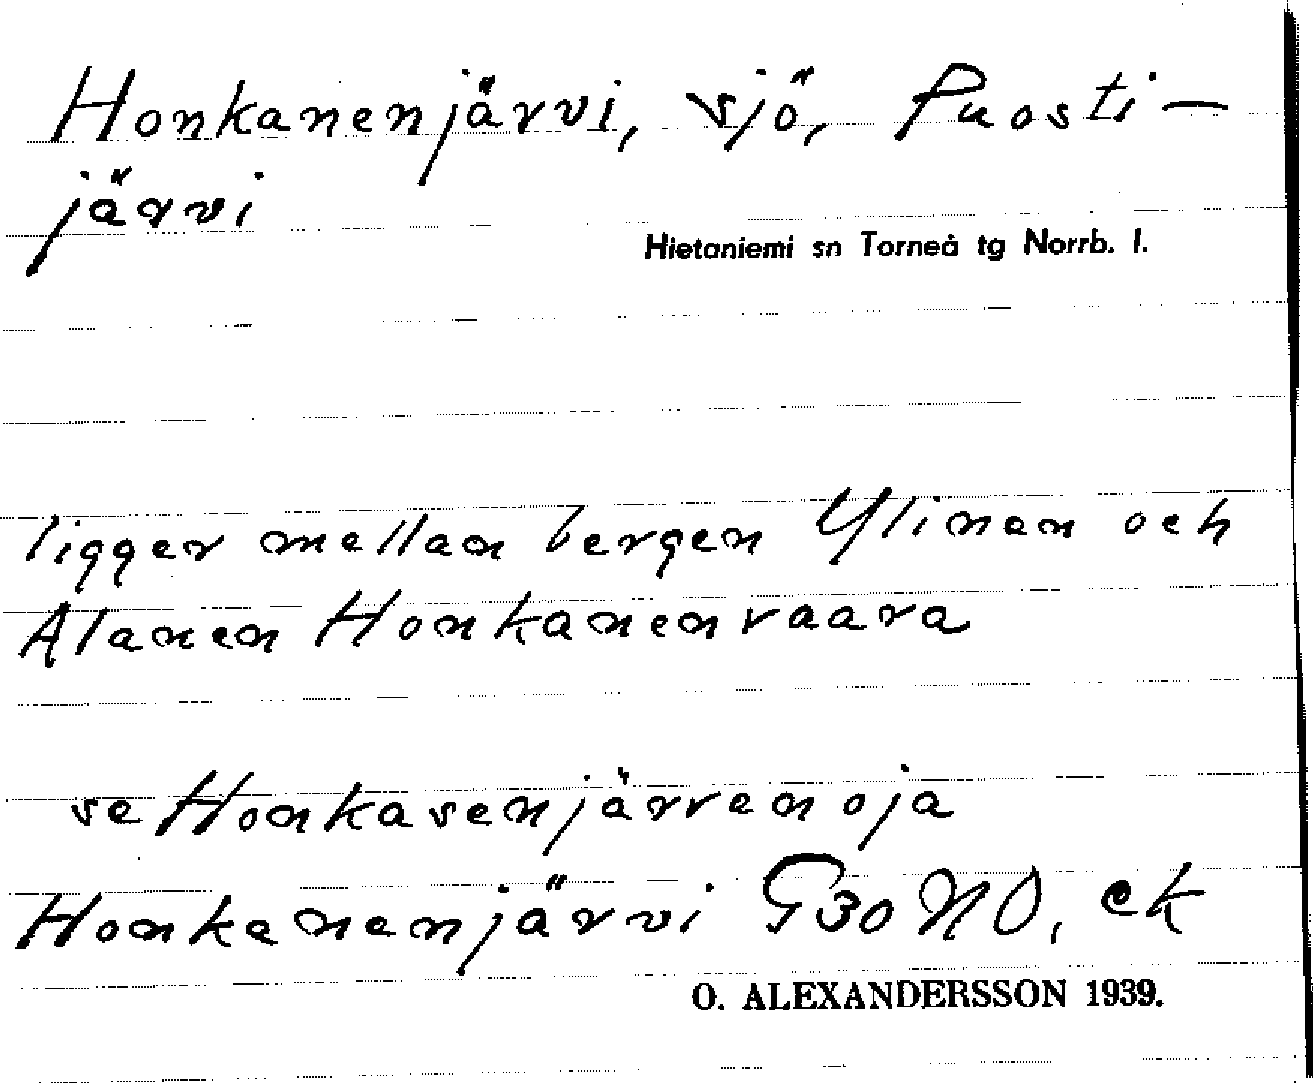 Honkanenjärvi, sjö, Puosti-
järvi
Hietaniemi sn Torneå tg Norrb. l.
ligger mellan bergen Ylinen och
Alanen Honkanenvaara
se Honkasenjärvenoja
Honkanenjärvi G30 NO, ek
O. ALEXANDERSSON 1939.